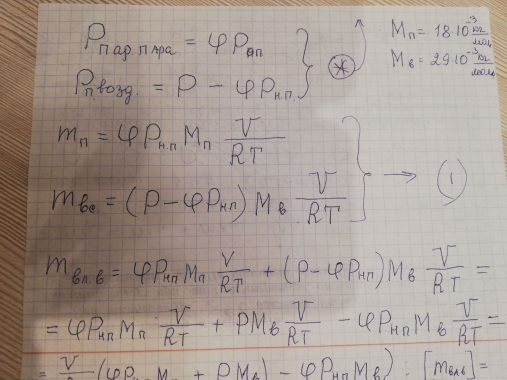 P парц пара = φPнп
Pп возд. = P − φPн.п
} ⊛
Mп = 18·10⁻³ кг/моль
Mв = 29·10⁻³ кг/моль
mп = φPнп Mп V/RT
mвс = (P−φPнп) Mв V/RT
} → (1)
mвл в = φPнп Mп V/RT + (P−φPнп) Mв V/RT =
= φPнп Mп · V/RT + PMв V/RT − φPнп Mв V/RT =
(φPнп Mп + PMв) − φPнп Mв) ; [mвлв]=